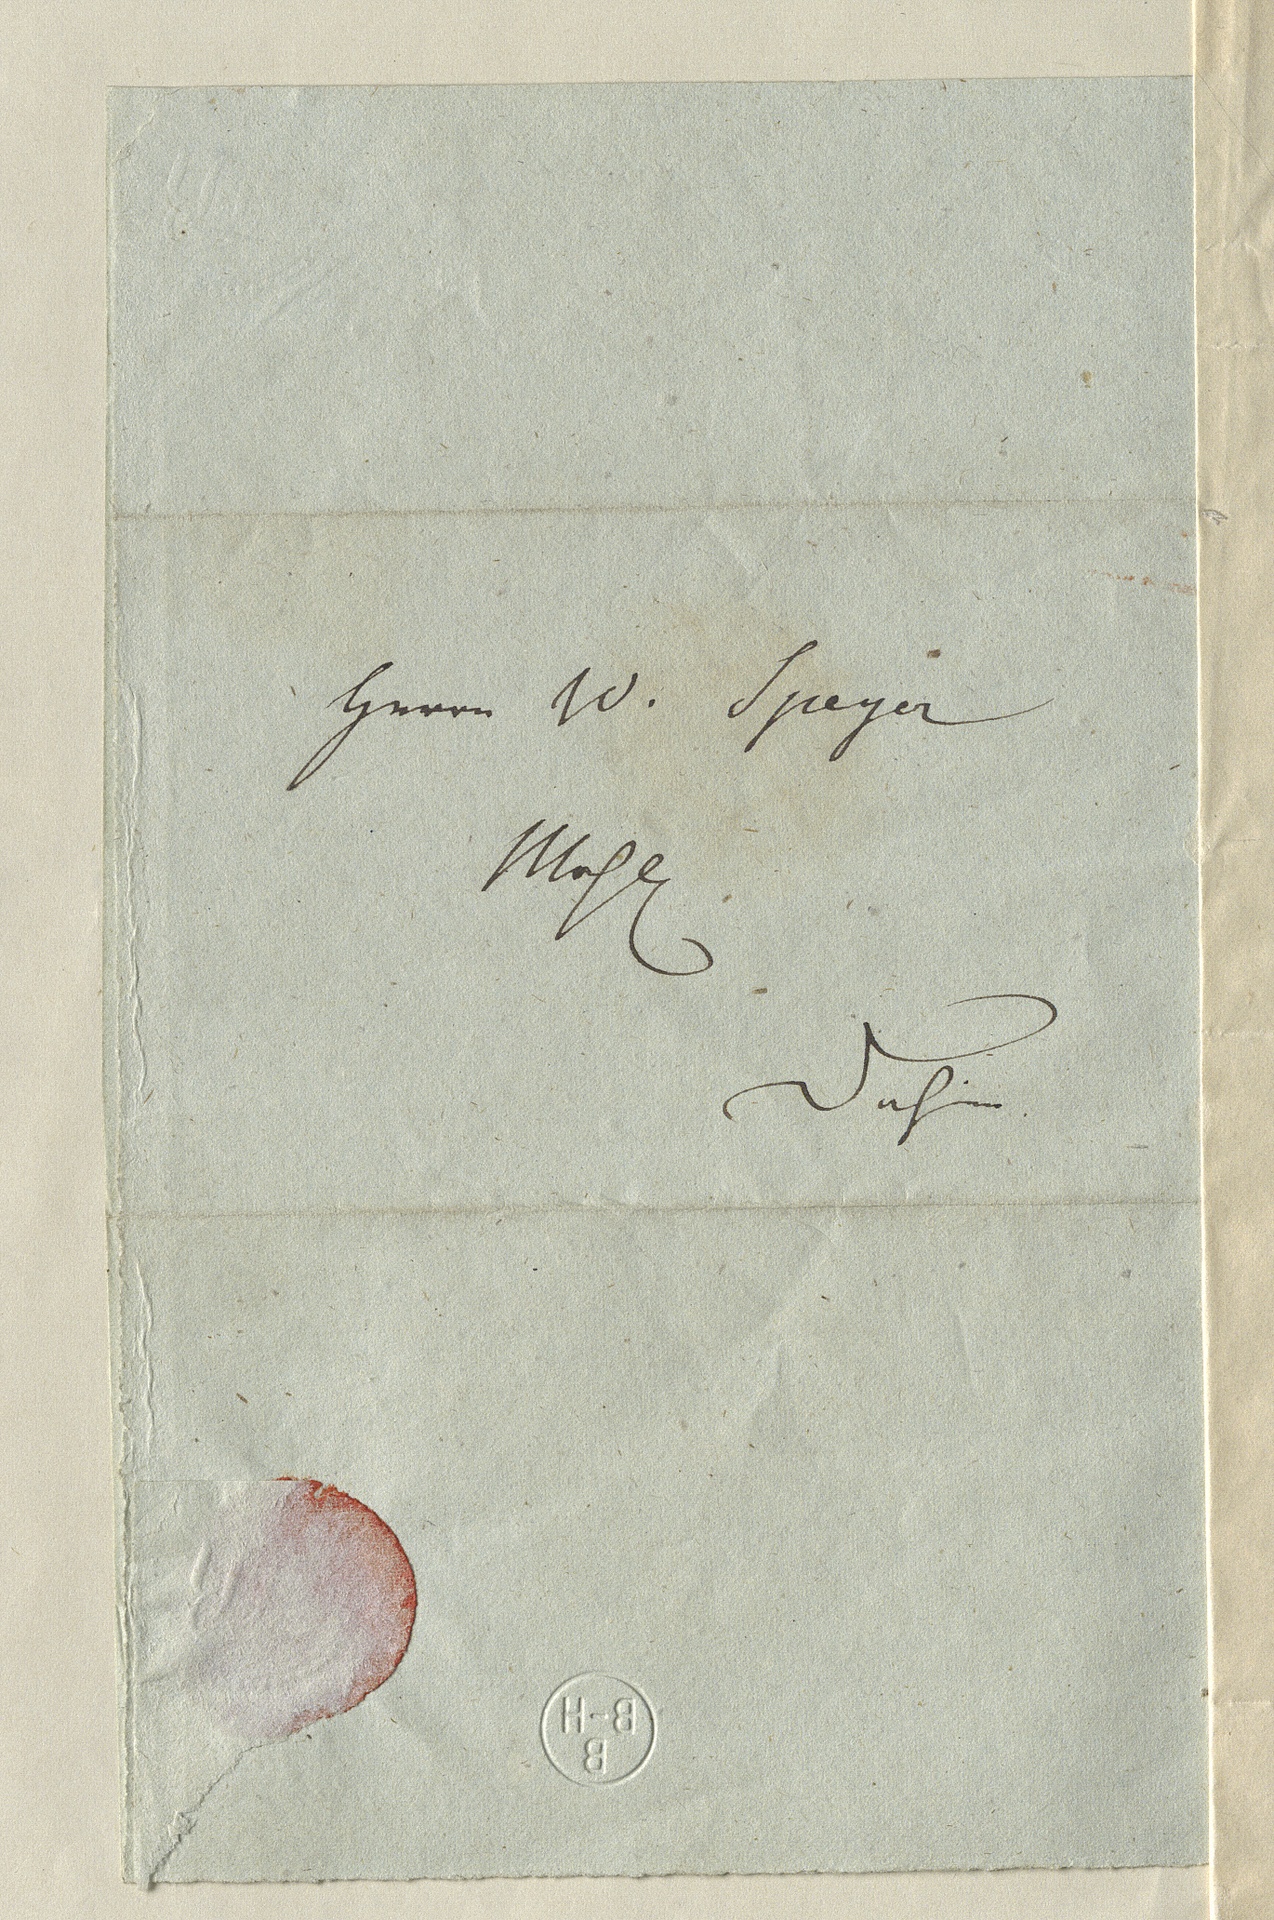 Herrn W. Speyer
Wohlg
Dahier.
B-H
B